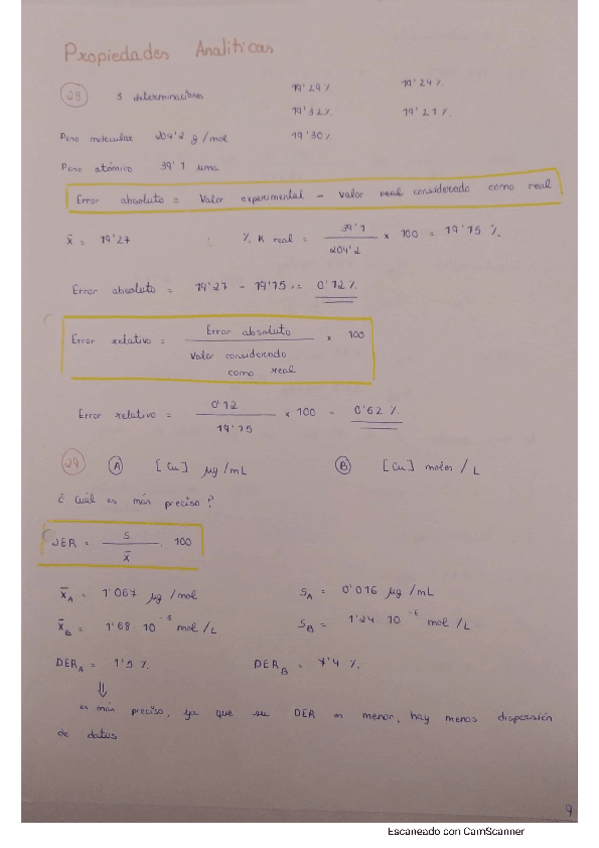 Propiedades Analíticas
28 5 determinaciones 19'29% 19'24%
19'32% 19'21%
Peso molecular 204'2 g/mol 19'30%
Peso atómico 39'1 uma
Error absoluto = Valor experimental - valor real considerado como real
x̄ = 19'27 % K real = 39'1 / 204'2 × 100 = 19'15 %.
Error absoluto = 19'27 - 19'15 = 0'12 %
Error relativo = Error absoluto / Valor considerado como real × 100
Error relativo = 0'12 / 19'15 × 100 = 0'62 %.
29 A [Cu] μg/mL B [Cu] moles/L
¿Cuál es más preciso?
DER = s / x̄ . 100
x̄A = 1'067 μg/mol sA = 0'016 μg/mL
x̄B = 1'68 10⁻⁵ mol/L sB = 1'24 10⁻⁶ mol/L
DERA = 1'5 %. DERB = 7'4 %.
⇓
es más preciso, ya que su DER es menor, hay menos dispersión
de datos
9
Escaneado con CamScanner